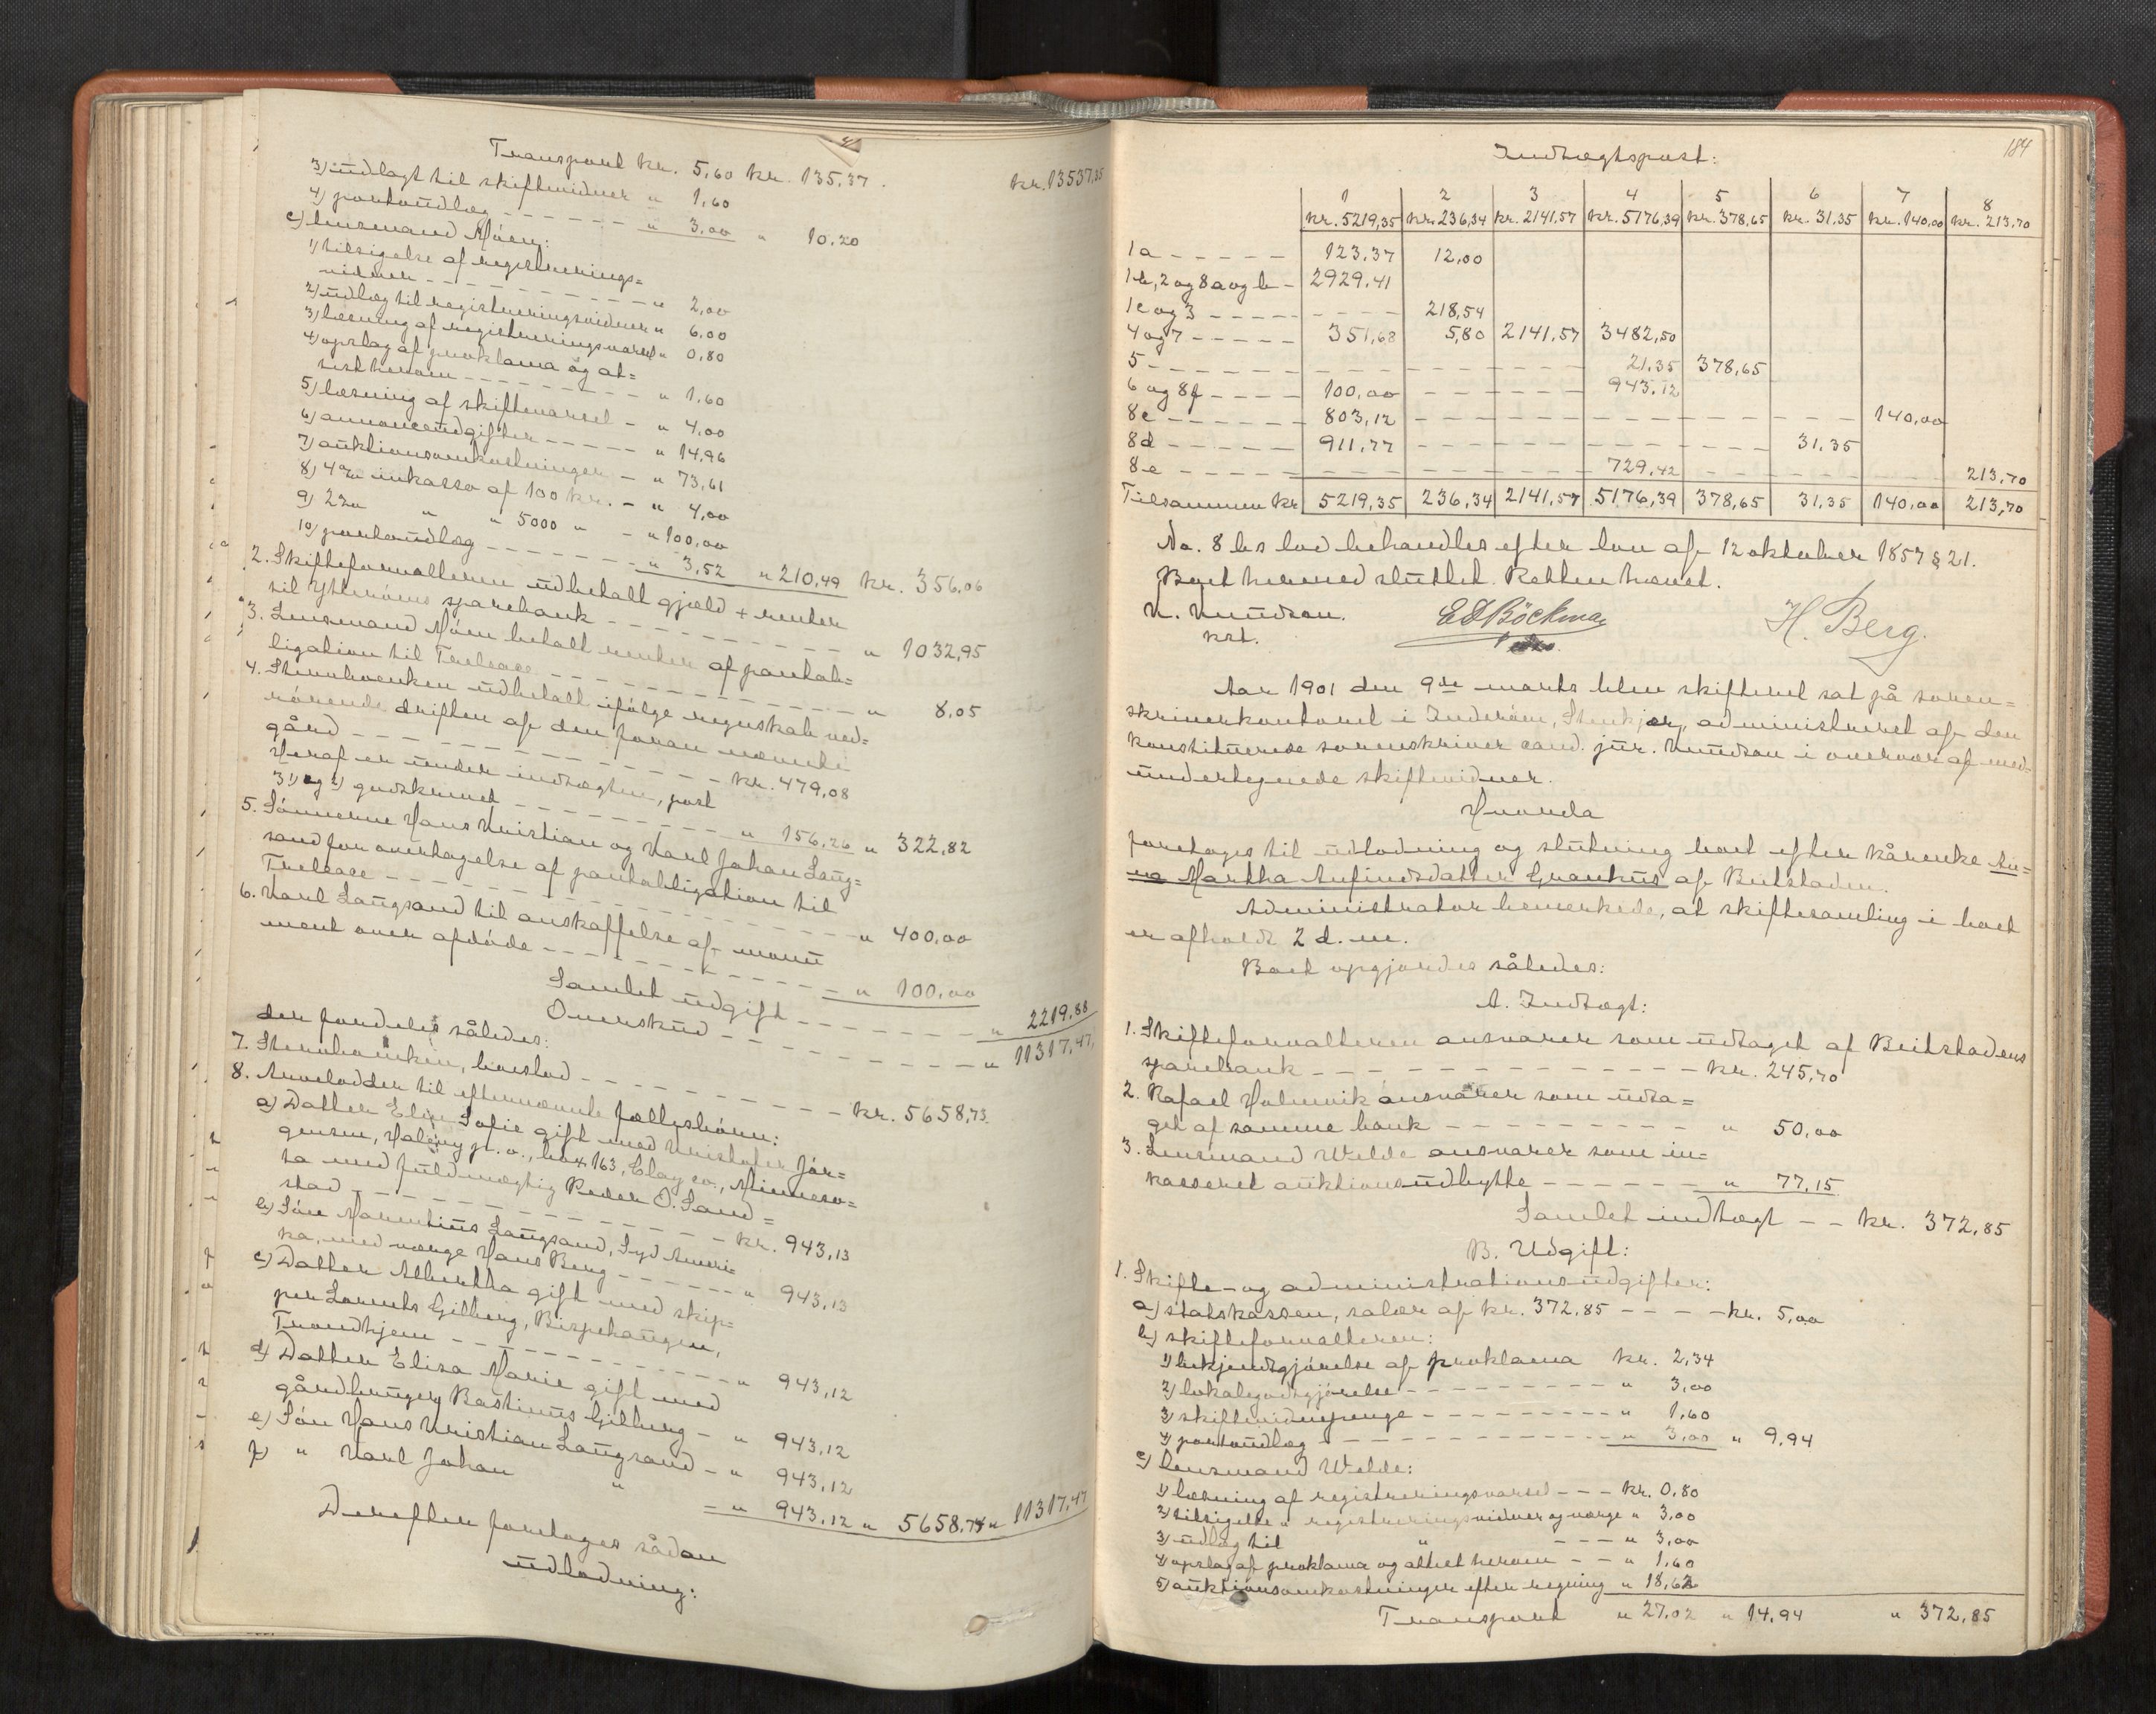 Transport kr. 5,60 kr. 135,37. kr. 13537,35
3) udlagt til skiftevidner " 1,60
4) portoudlæg - - - - - " 3,00 " 10.20
c) lensmand Må­en:
1) tilsigelse af registrerings=
vidner - - - - - - - - " 2,00
2) udlæg til registreringsvidner " 6,00
3) læsning af registreringsvarsel " 0,80
4) opslag af proklama og at=
test herom - - - - - - - " 1,60
5) læsning af skiftevarsel - " 4,00
6) annonceudgifter - - - - - " 14,96
7) auktionsomkostninger - " 73,61
8) 4% inkasso af 100 kr. - " 4,00
9) 2% " " 5000 " - " 100,00
10) portoudlæg - - - - - - " 3,52 " 210,49 kr. 356,06
2. Skifteforvalteren udbetalt gjæld + renter
til Ytterøens sparebank - - - - - - " 1032,95
3. Lensmand betalt renter af pantob=
ligation til - - - - - - - " 8,05
4. Stervboenken udbetalt ifølge regnskab ved=
rørende driften af den foran nævnte
gård - - - - - - - - kr. 479,08
Heraf er under indtægten, post
3 1) og 2) godskrevet - - - - " 156,26 " 322,82
5. Sønnerne Hans Kristian og Karl Johan Laug=
sand for overtagelse af pantobligation til
- - - - - - - - - " 400,00
6. Karl Laugsand til anskaffelse af monu
ment over afdøde - - - - - - - " 100,00
Samlet udgift - - - - - - " 2219,88
Overskud - - - - - - - - " 11317,47,
der fordeles således:
7. Stervboenken, boeslod - - - - - - kr. 5658,73
8. Arvelodder til efternævnte fællesbørn:
a) Datter Elen Sofie gift med Kristofer Jør=
gensen, p. o., box 163, Clay co., Minneso=
ta med fuldmægtig Peder O. Sand=
stad - - - - - - - - - kr. 943,13
b) Søn Martinus Laugsand, Syd Ameri=
ka, med værge Hans Berg - - - - " 943,13
c) Datter Albertha gift med skip=
per Lorents Gilberg, Bispehaugen,
Trondhjem - - - - - - - - - " 943,12
d) Datter Elisa Marie gift med
gårdbruger Bastinus Gilberg - " 943,12
e) Søn Hans Kristian Laugsand - " 943,12
f) " Karl Johan " - " 943,12 " 5658,74 " 11317,47
Derefter foretages sådan
udlodning:
184
Indtægtspost:
1 2 3 4 5 6 7 8
kr. 5219,35 kr. 236,34 kr. 2141,57 kr. 5176,39 kr. 378,65 kr. 31,35 kr. 140,00 kr. 213,70
1a - - - - - - 123,37 12,00
1b, 2 og 8a og b - 2929,41
1c og 3 - - - - - - - - 218,54
4 og 7 - - - - - 351,68 5,80 2141,57 3482,50
5 - - - - - - - - - - - - 21,35 378,65
6 og 8f - - - - 100,00 - - - - - - 943,12
8c - - - - - - 803,12 - - - - - - - - - - 140,00
8d - - - - - - 911,77 - - - - - - - - - 31,35
8e - - - - - - - - - - - - - 729,42 - - - - - - 213,70
Tilsammen kr 5219,35 236,34 2141,57 5176,39 378,65 31,35 140,00 213,70
No. 8 bs lod behandles efter lov af 12 oktober 1857 § 21.
Boet hermed sluttet. Retten hævet.
K. Knudson. E D Böckman H. Berg.
kst.
Aar 1901 den 9de marts blev skifteret sat på soren=
skriverkontoret i Inderøen, Stenkjær, administreret af den
konstituerede sorenskriver cand. jur. Knudson i overvær af med=
undertegnede skiftevidner.
Hvorda
foretoges til udlodning og slutning boet efter kårenke An=
na Martha Anfindsdatter Grankus af Beitstaden.
Administrator bemerkede, at skiftesamling i boet
er afholdt 2 d. m.
Boet opgjordes således:
A. Indtægt:
1. Skifteforvalteren ansvarer som udtaget af Beitstadens
sparebank - - - - - - - - - - kr. 245,70
2. Rafael Holmvik ansvarer som udta=
get af samme bank - - - - - - - - " 50,00
3. Lensmand Welde ansvarer som in=
kasseret auktionsudbytte - - - - - - " 77,15
Samlet indtægt - - kr. 372,85
B. Udgift:
1. Skifte- og administrationsudgifter:
a) statskassen, salær af kr. 372,85 - - - - kr. 5,00
b) skifteforvalteren:
1) bekjendtgjørelse af proklama kr. 2,34
2) lokalegodtgjørelse - - - - - - - " 3,00
3) skiftevidnepenge - - - - - - - - " 1,60
4) portoudlæg - - - - - - - - - - " 3,00 " 9,94
c) lensmand Welde:
1) læsning af registreringsvarsel - - - kr. 0,80
2) tilsigelse " registreringsvidner og værge " 3,00
3) udlæg til " - - - " 3,00
4) opslag af proklama og attest herom - - " 1,60
5) auktionsomkostninger efter regning " 18,62
Transport " 27,02 " 14,94 " 372,85